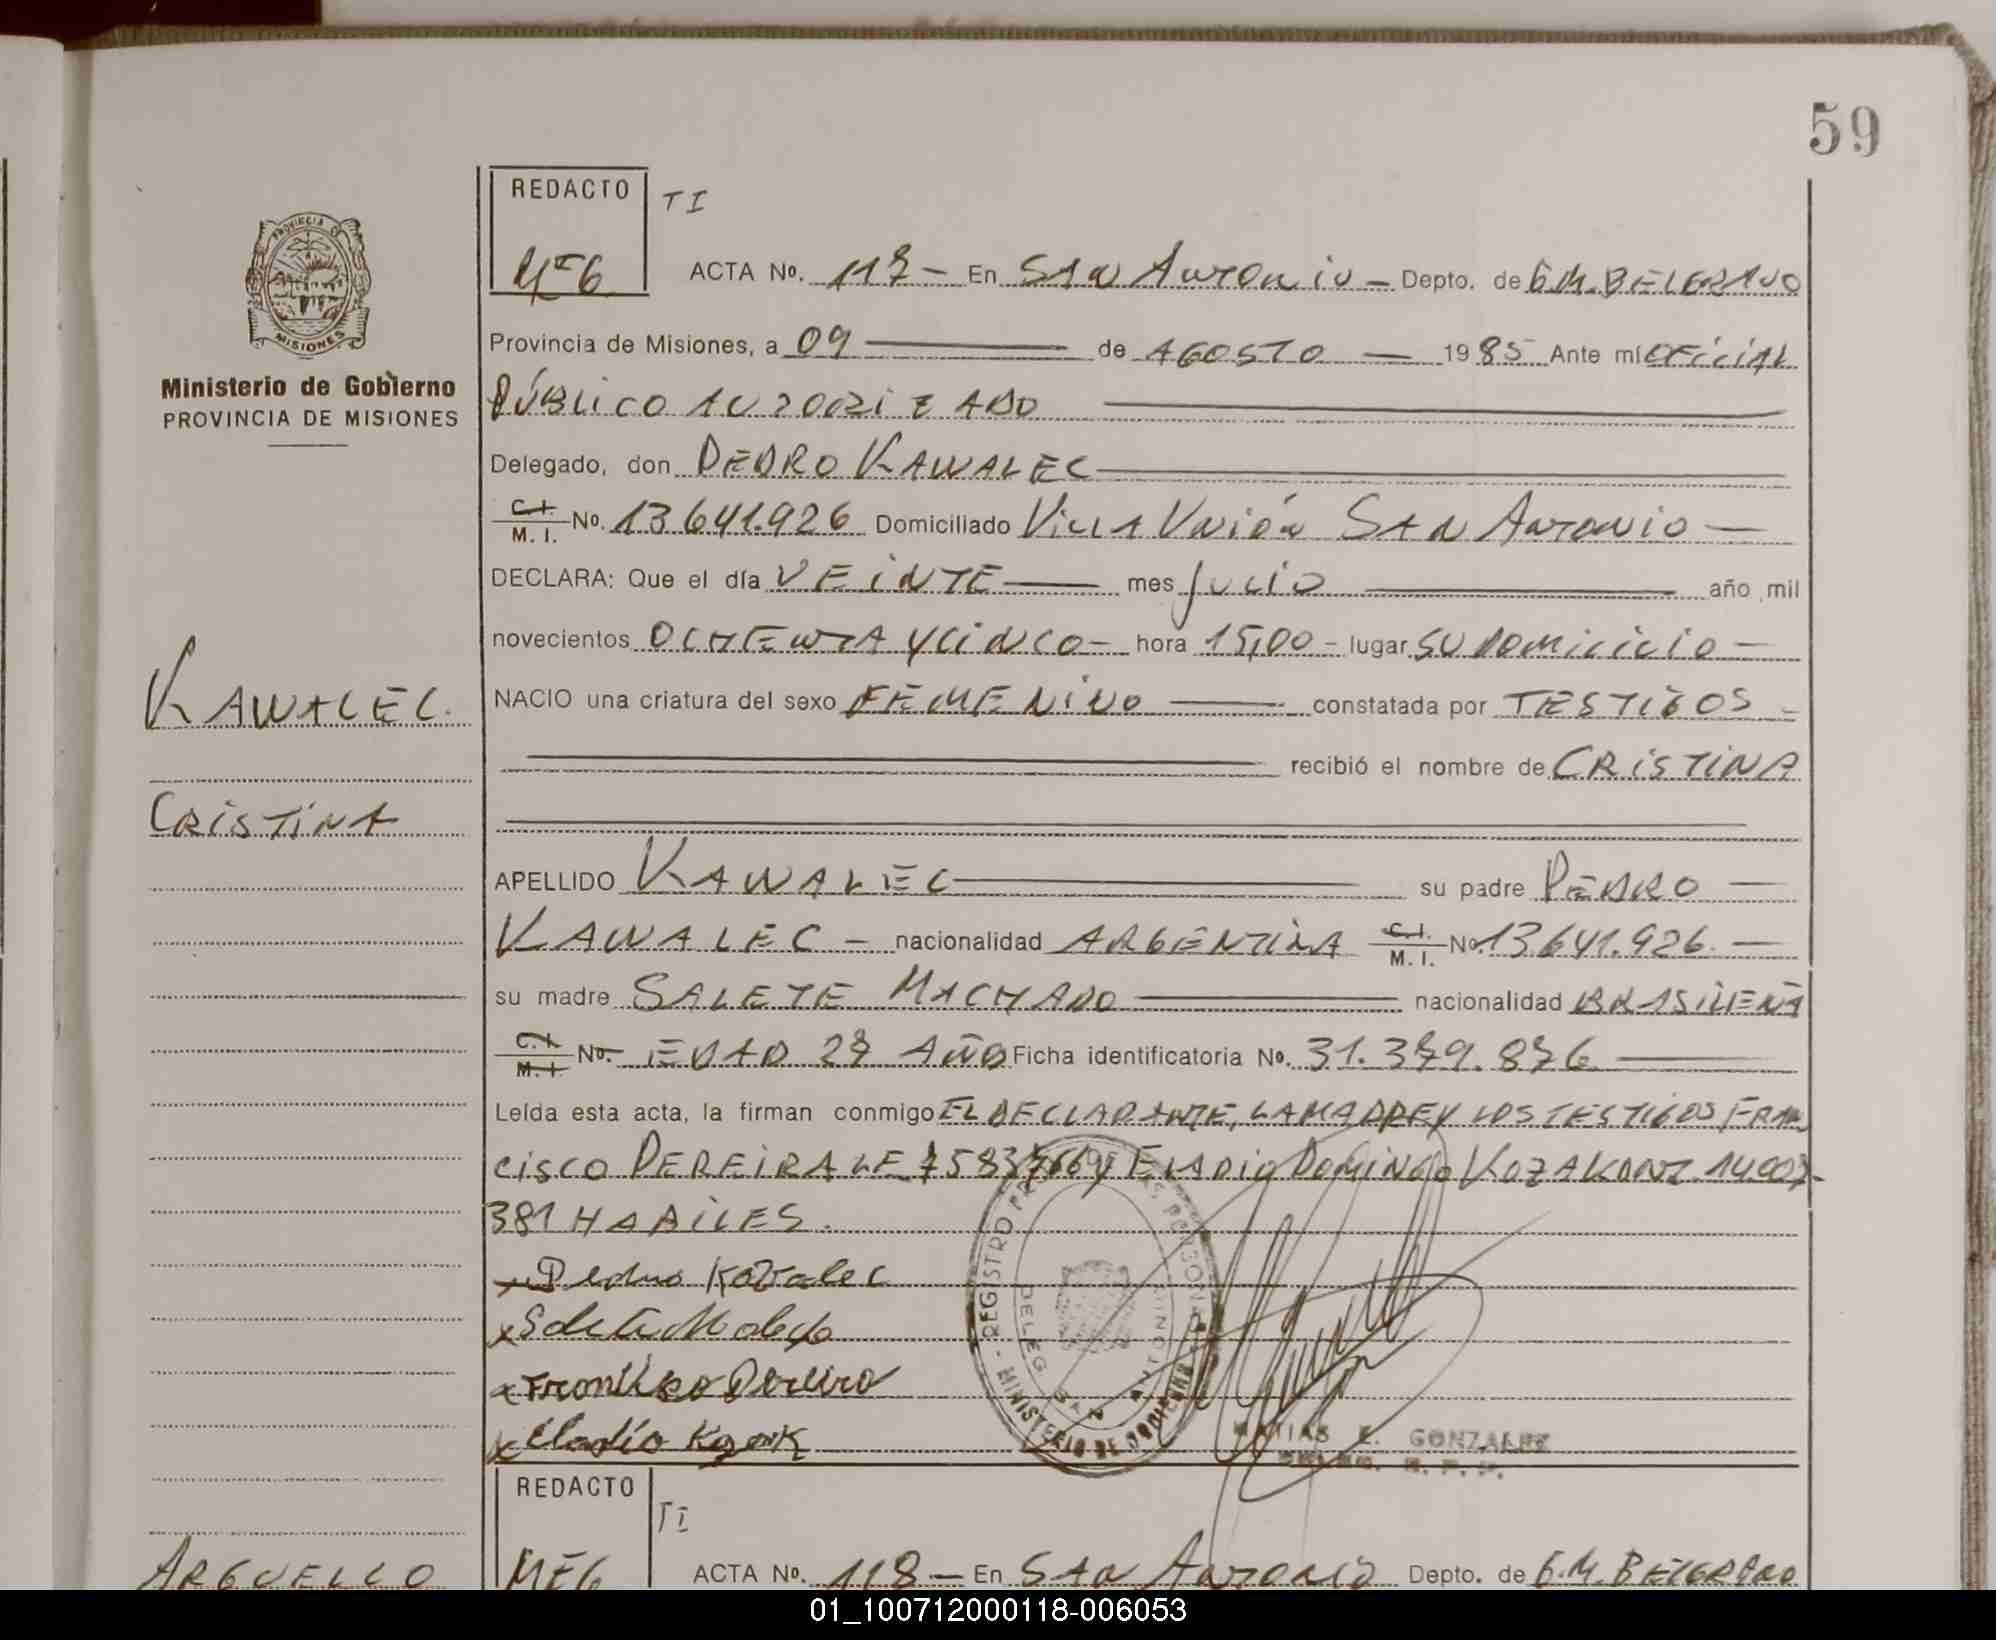 59
REDACTO TI
MEG ACTA No. 117 - En SAN ANTONIO - Depto. de G.M. BELGRANO
PROVINCIA DE MISIONES
Provincia de Misiones, a 09 de AGOSTO 1985 Ante mí OFICIAL
Ministerio de Gobierno
PROVINCIA DE MISIONES
PÚBLICO AUTORIZADO
Delegado, don PEDRO KAWALEC
C.I. M.I. No. 13.641.926 Domiciliado VILLA UNIÓN SAN ANTONIO
DECLARA: Que el día VEINTE mes JULIO año mil
novecientos OCHENTA Y CINCO - hora 15,00 - lugar SU DOMICILIO
KAWALEC.
NACIO una criatura del sexo FEMENINO constatada por TESTIGOS
recibió el nombre de CRISTINA
CRISTINA
APELLIDO KAWALEC su padre PEDRO
KAWALEC - nacionalidad ARGENTINA C.I. M.I. No. 13.641.926.
su madre SALETE MACHADO nacionalidad BRASILEÑA
C.I. M.I. No. EDAD 27 AÑOS Ficha identificatoria No. 31.379.876
Leída esta acta, la firman conmigo EL DECLARANTE, LA MADRE Y LOS TESTIGOS FRAN
CISCO PEREIRA LE 7583766 Y ELADIO DOMINGO KOZAK DNI. 14.007-
381 HABILES.
x Pedro Kavalec
x
x Pereira
x Eladio Kozak
REGISTRO PERSONAS
DELEG. SAN ANTONIO
MINISTERIO DE GOBIERNO
MATIAS E. GONZALEZ
REDACTO TI
ARGUELLO MEG ACTA No. 118 - En SAN ANTONIO Depto. de G.M. BELGRANO
01_100712000118-006053